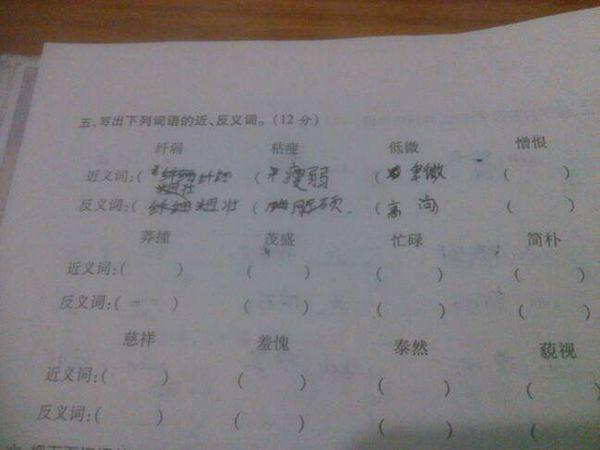 五、写出下列词语的近、反义词。(12分)
纤弱 枯瘦 低微 憎恨
近义词:( 纤细 ) ( 瘦弱 ) ( 卑微 ) ( )
反义词:( 粗壮 ) ( 肥硕 ) ( 高尚 ) ( )
莽撞 茂盛 忙碌 简朴
近义词:( ) ( ) ( ) ( )
反义词:( ) ( ) ( ) ( )
慈祥 羞愧 泰然 藐视
近义词:( ) ( ) ( ) ( )
反义词:( ) ( ) ( ) ( )